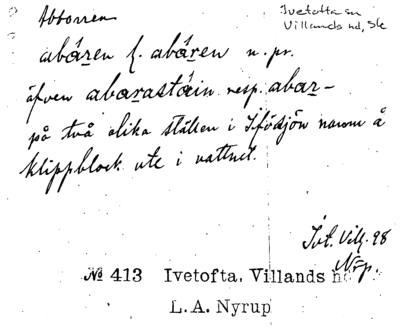 Abborren
Ivetofta sn
Villands hd, Sk
abären l. abären n. pr.
äfven abarastäin resp. abar-
på två olika ställen i Ifösjön namn å
klippblock ute i vattnet.
Ivt. Vill. 98
Nrp.
№ 413 Ivetofta, Villands h
L. A. Nyrup